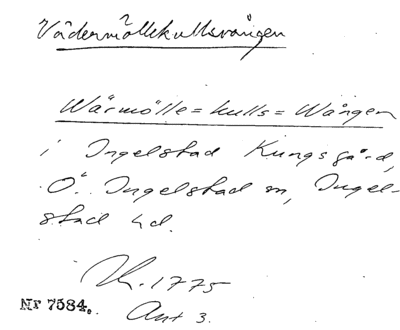 Vädermöllekullsvången
Wärmölle=kulls=Wången
i Ingelstad Kungsgård,
Ö. Ingelstad sn, Ingel-
stad hd.
1775
Nr 7584.
Akt 3.